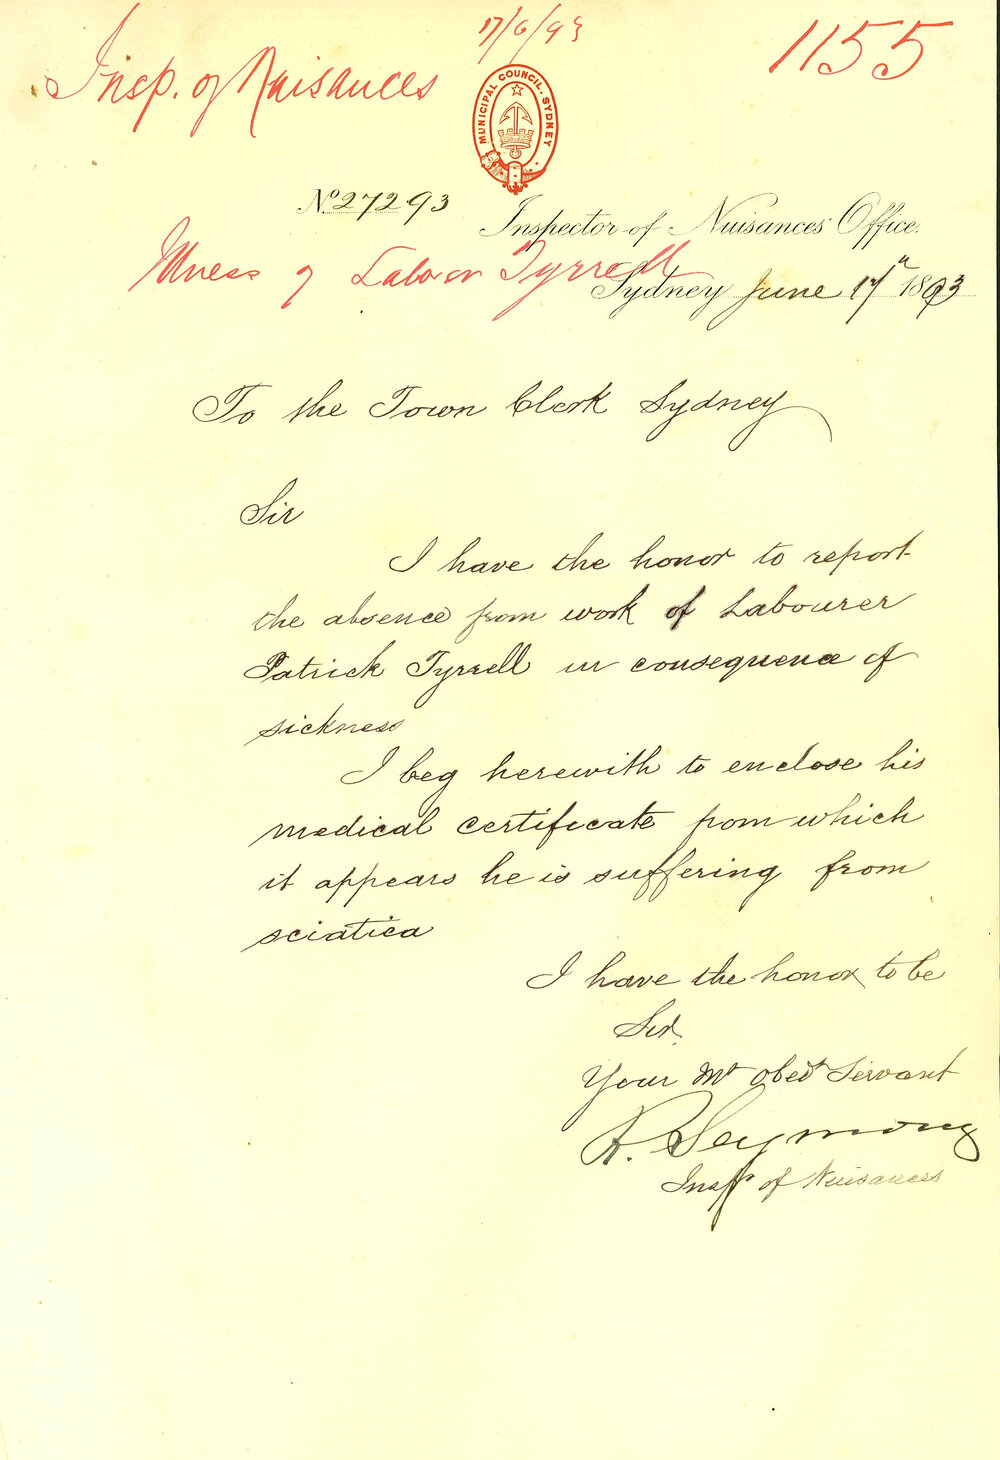 17/6/93
1155
Insp. of Nuisances
MUNICIPAL COUNCIL. SYDNEY
No. 272 93
Inspector of Nuisances Office.
Illness of Labor Tyrrell
Sydney June 17th 1893
To the Town Clerk Sydney
Sir
I have the honor to report
the absence from work of Labourer
Patrick Tyrrell in consequence of
sickness
I beg herewith to enclose his
medical certificate from which
it appears he is suffering from
sciatica
I have the honor to be
Sir.
Your Mt Obedt Servant
R. Seymour
Inspr of Nuisances